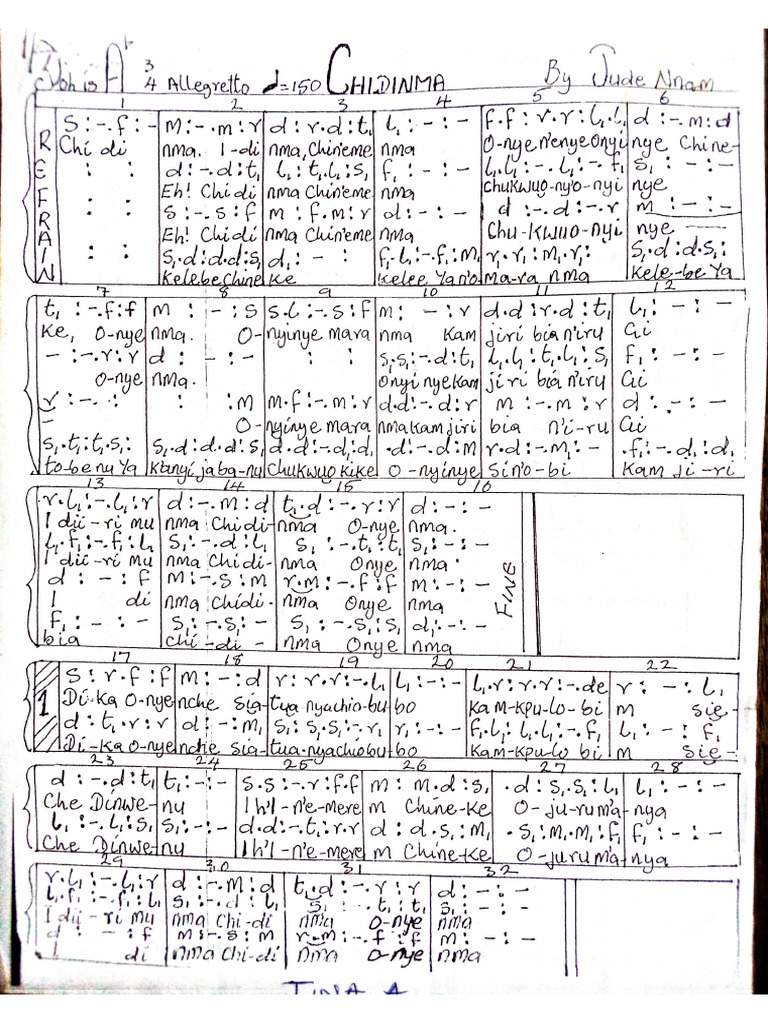 Doh is Ab 3/4 Allegretto ♩=150 CHIDINMA By Jude Nnam
1 2 3 4 5 6
REFRAIN
s :-.f :- | m :-.m :r | d :r.d :t₁ | l₁ :- :- | f.f :r.r :l₁.l₁ | d :-.m :d
Chi di nma. I-di nma, Chin'eme nma O-nye n'enye Onyi nye Chine-
: : | d :-.d :t₁ | l₁ :t₁.l₁ :s₁ | f₁ :- :- | l₁.l₁ :-.l₁ :-.f₁ | s₁ :- :-
Eh! Chi di nma Chin'eme nma Chukwuo-ny'o-nyi nye
: : | s :-.s :f | m :f.m :r | d :- :- | d :-.d :-.r | m :- :-
Eh! Chidi nma Chin'eme nma Chu-kwuo-nyi nye
: : | s₁.d :d.d :s₁ | d₁ :- : | f₁.l₁ :-.f₁ :m₁ | r₁.r₁ :m₁.r₁ : | s₁.d :d.d :s₁
Kelebe Chine ke kelee Ya n'o ma-ra nma Kele-be Ya
7 8 9 10 11 12
t₁ :-.f :f | m :- :s | s.l :-.s :f | m :- :r | d.d :r.d :t₁ | l₁ :- :-
ke, O-nye nma. O-nyinye mara nma Kam jiri bia n'iru Gi
- :-.r :r | d :- :- | : : | s₁.s₁ :-.d :t₁ | l₁.l₁ :t₁.l₁ :s₁ | f₁ :- :-
O-nye nma. Onyi nye Kam jiri bia n'iru Gi
r :-.- : | : :m | m.f :-.m :r | d.d :-.d :r | m :-.m :r | d :- :-
- O-nyinye mara nma Kam jiri bia n'i-ru Gi
s₁.t₁ :t₁.s₁ : | s₁.d :d.d :s₁ | d.d :-.d₁ :d₁ | .d :-.d :m | r.d :-.m :- | .f₁ :-.d₁ :d₁
to-be nu Ya kanyi jaba-nu Chukwuo kike O-nyinye Sin'o-bi Kam ji-ri
13 14 15 16
r.l₁ :-.l₁ :r | d :-.m :d | t₁.d :-.r :r | d :- :-
I dii-ri mu nma Chidi-nma O-nye nma.
l₁.f₁ :-.f₁ :l₁ | s₁ :-.d :l₁ | s₁ :-.t₁ :t₁ | s₁ :- :-
I dii-ri mu nma Chidi-nma Onye nma.
d :- :f | m :-.s :m | r.m :-.f :f | m :- :-
I di nma Chidi-nma Onye nma
f₁ :- :- | s₁ :-.s₁ :- | s₁ :-.s₁ :s₁ | d₁ :- :-
bia chi-di-nma Onye nma
FINE
17 18 19 20 21 22
1
s :r.f :f | m :- :d | r :r.r :-.l₁ | l₁ :- :- | l₁.r :r.r :-.de | r :- :l₁
Di-ka O-nyenche sia-tua nyachio-bu bo Kam-kpu-lo-bi m sie-
d :t₁.r :r | d :- :m₁ | s₁ :s₁.s₁ :-.r₁ | r₁ :- :- | f₁.l₁ :l₁.l₁ :-.f₁ | l₁ :- :f₁
Di-ka O-nyenche sia-tua-nyachio bu bo Kam-kpulo bi m sie-
23 24 25 26 27 28
d :-.d :t₁ | t₁ :- :- | s.s :-.r :f.f | m :m.d :s₁ | .d :s₁.s₁ :l₁ | l₁ :- :-
Che Dinwe-nu Ih'l-n'e-mere m Chine-ke O-ju-rum'a-nya
l₁ :-.l₁ :s₁ | s₁ :- :- | d.d :-.t₁ :r.r | d :d.s₁ :m₁ | .s₁ :m₁.m₁ :f₁ | f₁ :- :-
Che Dinwe-nu Ih'l-n'e-mere m Chine-ke O-jurum'a-nya
29 30 31 32
r.l₁ :-.l₁ :r | d :-.m :d | t₁.d :-.r :r | d :- :-
l₁.f₁ :-.f₁ :l₁ | s₁ :-.d :l₁ | s₁ :-.t₁ :t₁ | s₁ :- :-
I dii-ri mu nma Chi-di nma O-nye nma
d :- :f | m :-.s :m | r.m :-.f :f | m :- :-
I di nma Chi-di nma O-nye nma